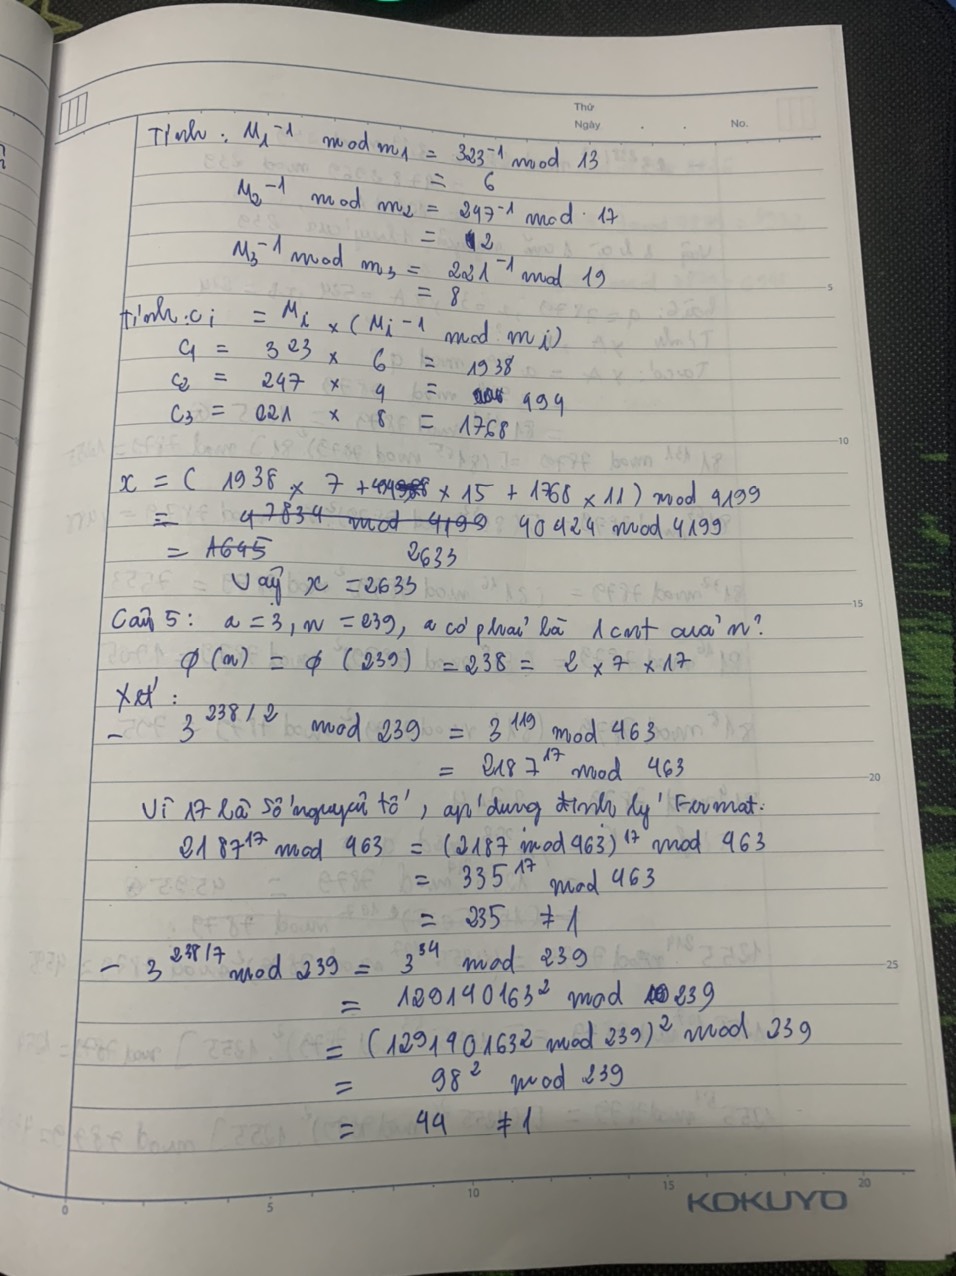 Thứ
Ngày . . No.
Tính: M₁⁻¹ mod m₁ = 323⁻¹ mod 13
= 6
M₂⁻¹ mod m₂ = 247⁻¹ mod 17
= 2
M₃⁻¹ mod m₃ = 221⁻¹ mod 19
= 8
5
Tính: cᵢ = Mᵢ × (Mᵢ⁻¹ mod mᵢ)
c₁ = 323 × 6 = 1938
c₂ = 247 × = 494
c₃ = 221 × 8 = 1768
10
x = ( 1938 × 7 + × 15 + 1768 × 11) mod 4199
= 47834 mod 4199 40424 mod 4199
= 1645 2633
Vậy x = 2633
15
Câu 5: a = 3, n = 239, a có phải là 1 cnt của n?
ϕ(n) = ϕ (239) = 238 = 2 × 7 × 17
Xét:
- 3^(238/2) mod 239 = 3^119 mod 463
= 2187^17 mod 463
20
Vì 17 là số nguyên tố, áp dụng định lý Fermat.
2187^17 mod 463 = (2187 mod 463)^17 mod 463
= 335^17 mod 463
= 235 ≠ 1
- 3^(238/7) mod 239 = 3^34 mod 239
25
= 129140163² mod 239
= (129140163² mod 239)² mod 239
= 98² mod 239
= 44 ≠ 1
0 5 10 15 20
KOKUYO